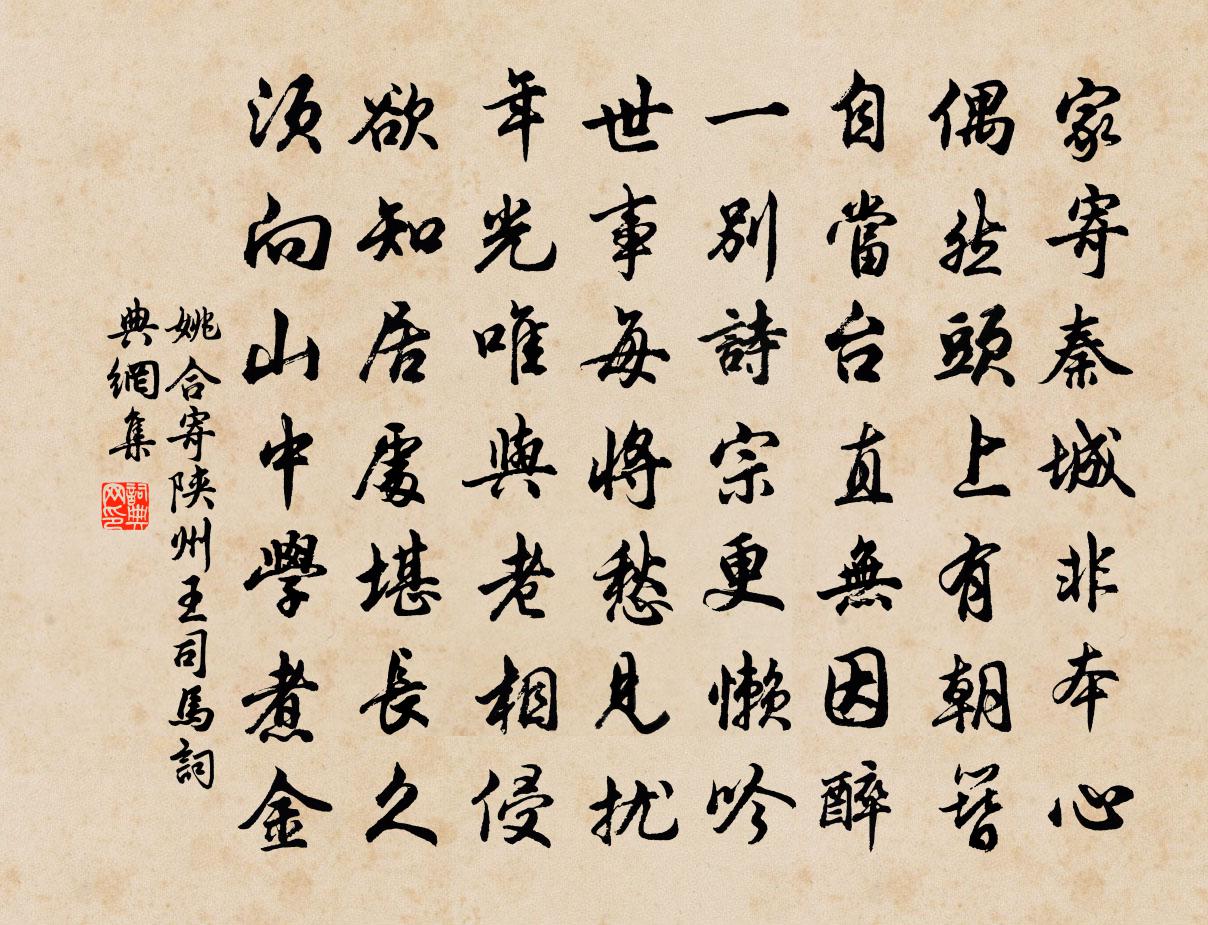 家寄秦城非本心
偶然頭上有朝簪
自當台直無因醉
一別詩宗更懶吟
世事每將愁見扰
年光唯與老相侵
欲知居處堪長久
須向山中學煮金
姚合寄陝州王司馬詞
典網集
詞典
网印